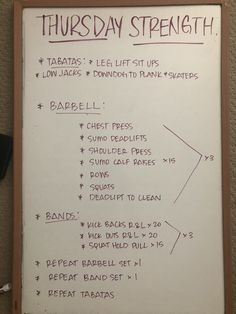 THURSDAY STRENGTH.
* TABATAS: * LEG LIFT SIT UPS
* LOW JACKS * DOWNDOG TO PLANK * SKATERS
* BARBELL:
* CHEST PRESS
* SUMO DEADLIFTS
* SHOULDER PRESS
* SUMO CALF RAISES * 15 x3
* ROWS
* SQUATS
* DEADLIFT TO CLEAN
* BANDS:
* KICK BACKS R&L x 20
* KICK OUTS R&L x 20 x3
* SQUAT HOLD PULL x 15
* REPEAT BARBELL SET x1
* REPEAT BAND SET x 1
* REPEAT TABATAS